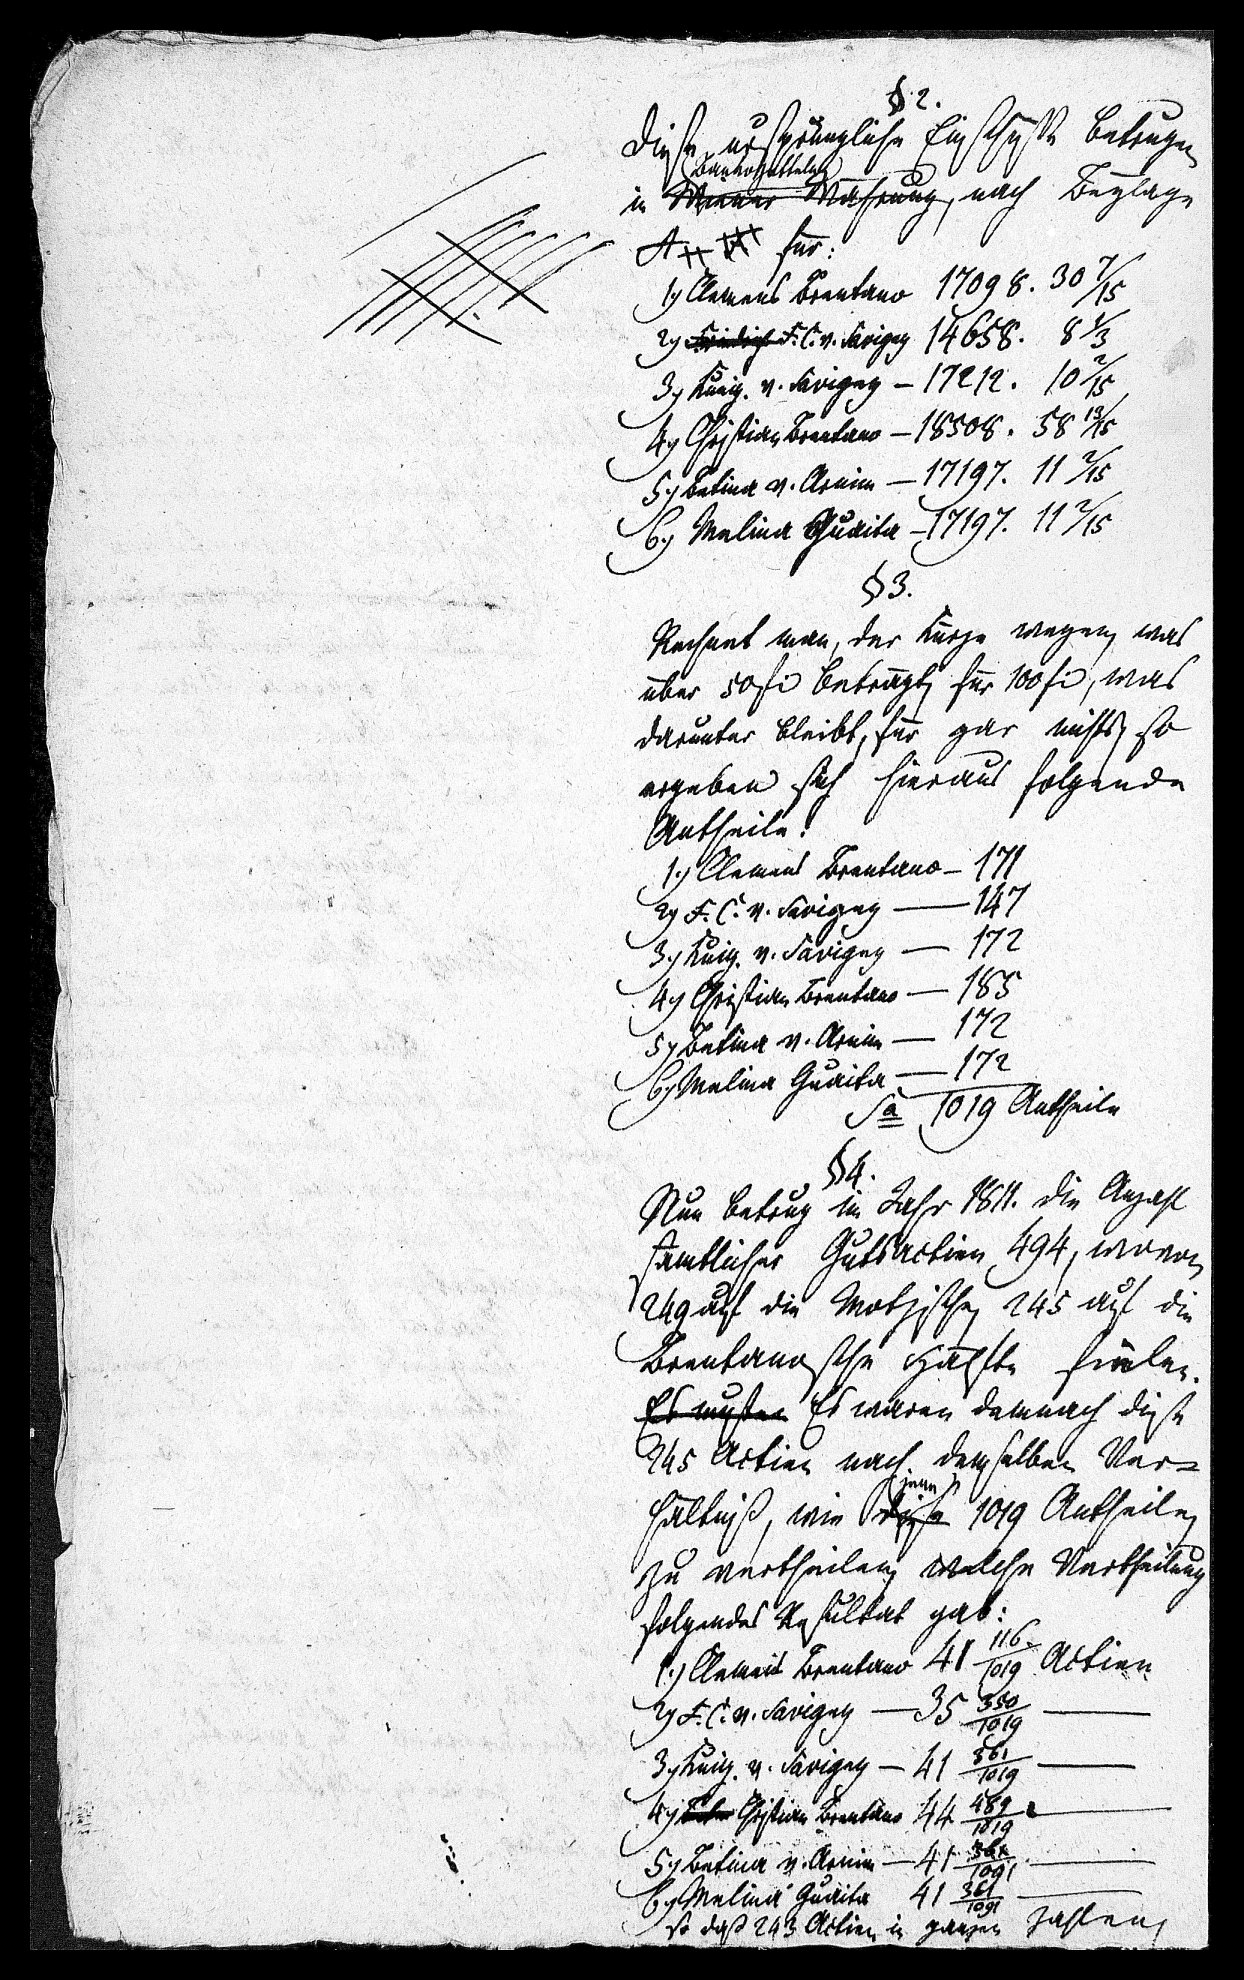 § 2.
Diese ursprüngliche Einschüße betrugen
Bankozetteln
in Wiener Währung, nach Beylage
A für:
1.) Clemens Brentano 17098. 30 7/15
2.) Friedrich F. C. v. Savigny 14658. 8 1/3
3.) Kunig. v. Savigny – 17212. 10 2/15
4.) Christian Brentano – 18508. 58 13/15
5.) Betina v. Arnim – 17197. 11 2/15
6.) Melina Guaita – 17197. 11 2/15
§ 3.
Rechnet man, der Kürze wegen, was
über 50 fl beträgt, für 100 fl, was
darunter bleibt, für gar nichts, so
ergeben sich hieraus folgende
Antheile:
1.) Clemens Brentano – 171
2.) F. C. v. Savigny — 147
3.) Kunig. v. Savigny — 172
4.) Christian Brentano — 185
5.) Betina v. Arnim — 172
6.) Melina Guaita — 172
Sa 1019 Antheile
§ 4.
Nun betrug im Jahr 1811. die Anzahl
sämtlicher Gutsactien 494, wovon
249 auf die Motzische, 245 auf die
Brentanosche Hälfte fielen.
Es mußten Es waren demnach diese
245 Actien nach demselben Ver=
jene
hältniß, wie diese 1019 Antheile,
zu vertheilen, welche Vertheilung
folgendes Resultat gab:
1.) Clemens Brentano 41 116/1019 Actien
2.) F. C. v. Savigny — 35 350/1019 —
3.) Kunig. v. Savigny — 41 361/1019 —
4.) Christian Brentano 44 489/1019 —
5.) Betina v. Arnim — 41 361/1091 —
6.) Melina Guaita 41 361/1091 —
so daß 243 Actien in ganzen Zahlen,